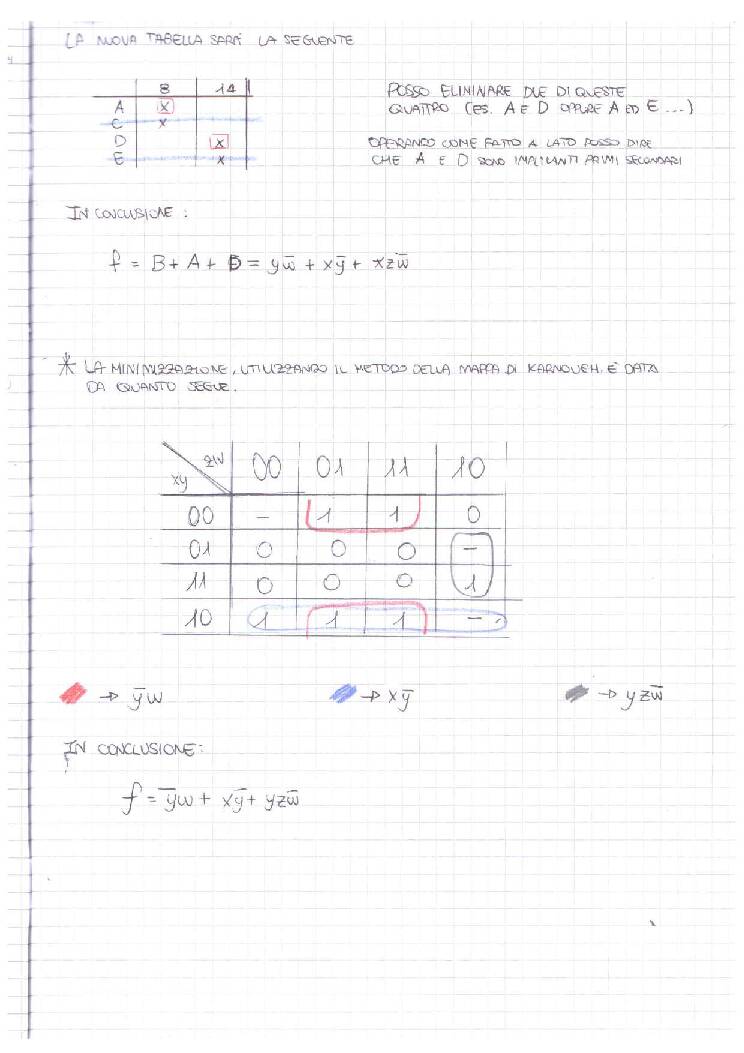 LA NUOVA TABELLA SARÀ LA SEGUENTE
8 14
A X
C X
D X
E X
POSSO ELIMINARE DUE DI QUESTE
QUATTRO (ES. A E D OPPURE A ED E ...)
OPERANDO COME FATTO A LATO POSSO DIRE
CHE A E D SONO IMPLICANTI PRIMI SECONDARI
IN CONCLUSIONE :
f = B + A + D = yw̅ + xy̅ + xzw̅
* LA MINIMIZZAZIONE, UTILIZZANDO IL METODO DELLA MAPPA DI KARNOUGH, È DATA
DA QUANTO SEGUE.
xy zw 00 01 11 10
00 - 1 1 0
01 0 0 0 -
11 0 0 0 1
10 1 1 1 -
→ y̅w → xy̅ → yzw̅
IN CONCLUSIONE:
f = y̅w + xy̅ + yzw̅